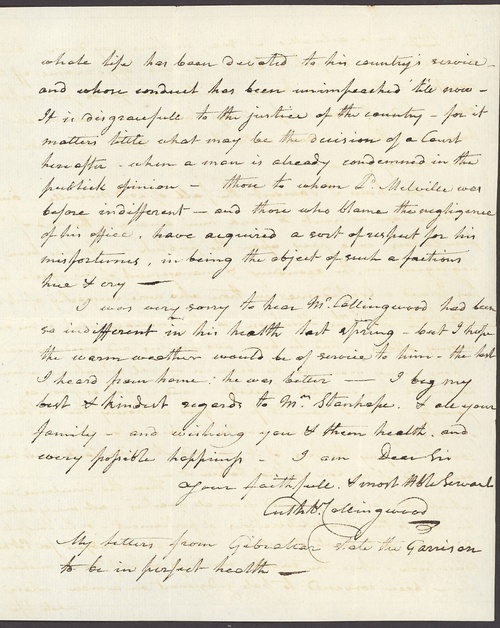 whole life has been devoted to his country's service -
and whose conduct has been unimpeached till now -
It is disgracefull to the justice of the country - for it
matters little what may be the decision of a Court
hereafter - when a man is already condemned in the
publick opinion - those to whom Ld. Melville was
before indifferent - and those who blame the negligence
of his office, have acquired a sort of respect for his
misfortunes, in being the object of such a factious
hue & cry -
I was very sorry to hear Mr. Collingwood had been
so indifferent in his health last spring - but I hope
the warm weather would be of service to him - the last
I heard from home he was better - I beg my
best & kindest regards to Mrs Stanhope, & all your
family - and wishing you & them health, and
every possible happiness - I am Dear Sir
your faithfull & most Hble Servant
Cuthbt. Collingwood
My letters from Gibraltar state the Garrison
to be in perfect health -